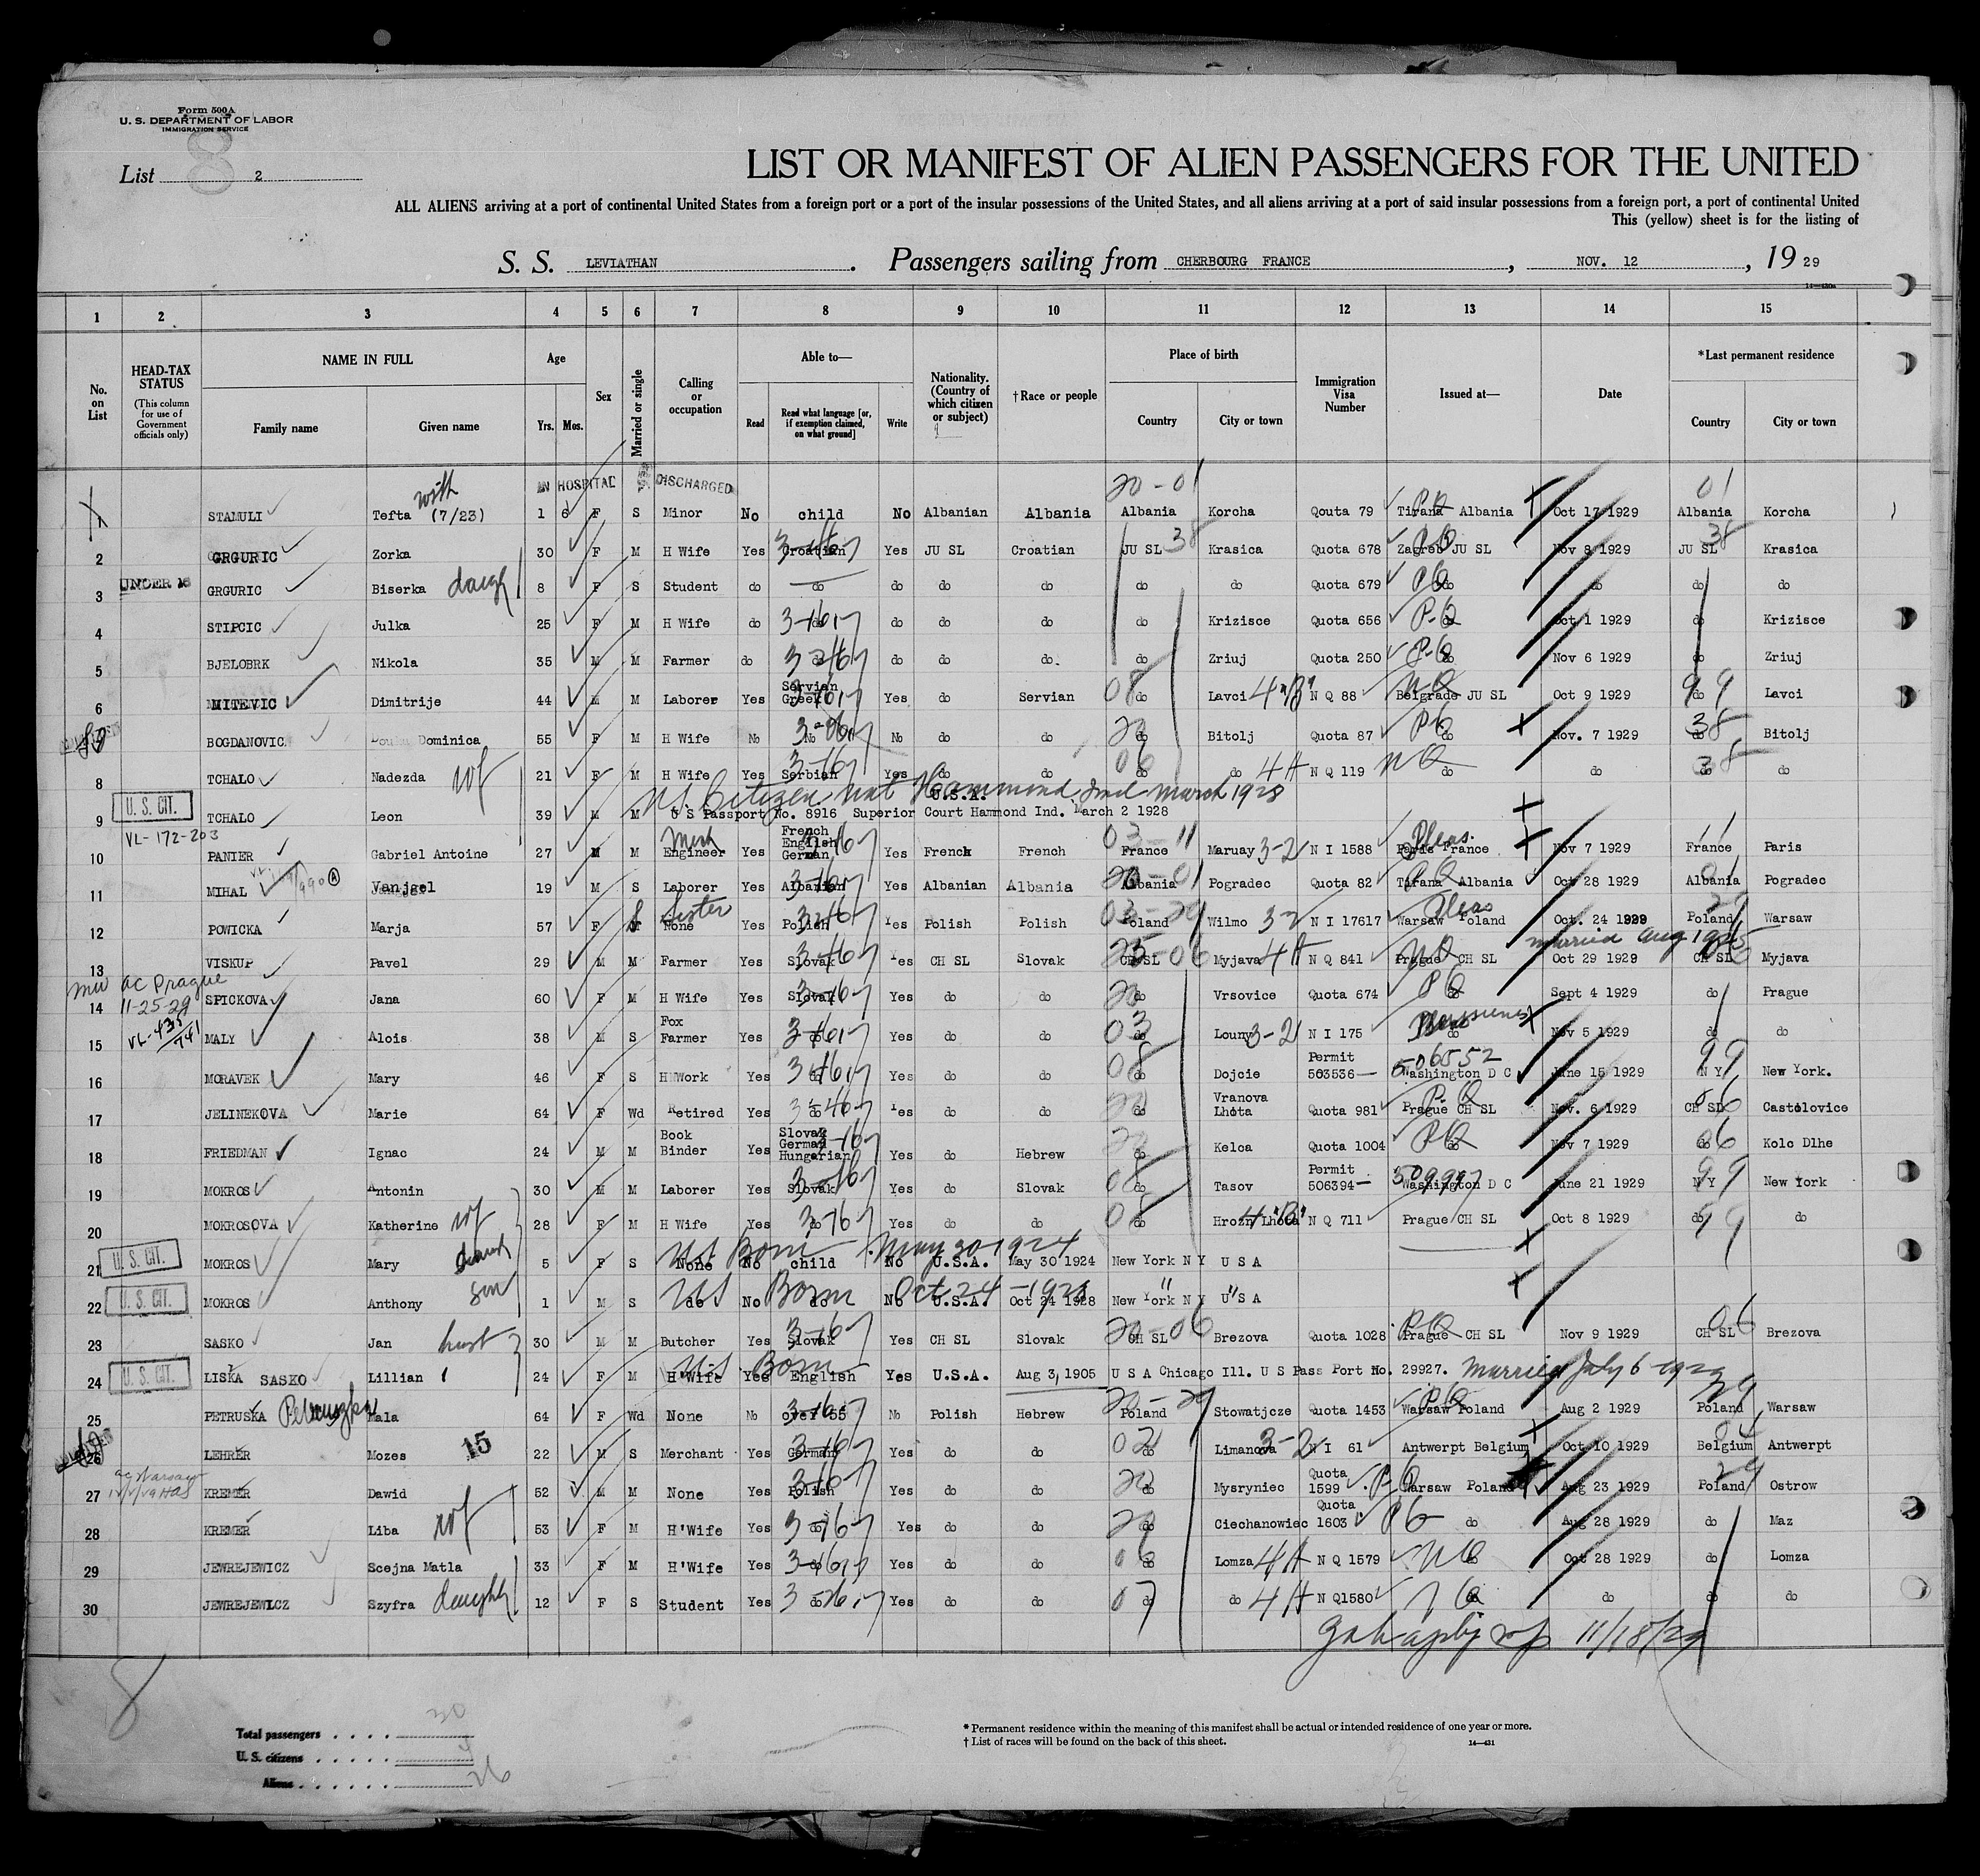 Form 500A
U. S. DEPARTMENT OF LABOR
IMMIGRATION SERVICE
8
List 2
LIST OR MANIFEST OF ALIEN PASSENGERS FOR THE UNITED
ALL ALIENS arriving at a port of continental United States from a foreign port or a port of the insular possessions of the United States, and all aliens arriving at a port of said insular possessions from a foreign port, a port of continental United
This (yellow) sheet is for the listing of
S. S. LEVIATHAN. Passengers sailing from CHERBOURG FRANCE, NOV. 12, 19 29
1 2 3 4 5 6 7 8 9 10 11 12 13 14 15
No. on List HEAD-TAX STATUS (This column for use of Government officials only) NAME IN FULL Family name Given name Age Yrs. Mos. Sex Married or single Calling or occupation Able to— Read Read what language [or, if exemption claimed, on what ground] Write Nationality. (Country of which citizen or subject) †Race or people Place of birth Country City or town Immigration Visa Number Issued at— Date *Last permanent residence Country City or town
with IN HOSPITAL DISCHARGED 20-01 01
1 STAMULI Tefta (7/23) 1 6 F S Minor No child No Albanian Albania Albania Korcha Qouta 79 Tirana Albania Oct 17 1929 Albania Korcha
2 GRGURIC Zorka 30 F M H Wife Yes Croatian Yes JU SL Croatian JU SL 38 Krasica Quota 678 Zagreb JU SL Nov 8 1929 JU SL 38 Krasica
3 UNDER 16 GRGURIC Biserka daugh 8 F S Student do do do do do do do Quota 679 PQ do do do do
4 STIPCIC Julka 25 F M H Wife do do do do do do Krizisce Quota 656 P-Q do Oct 1 1929 do Krizisce
5 BJELOBRK Nikola 35 M M Farmer do do do do do. do Zriuj Quota 250 P-Q do Nov 6 1929 do Zriuj
6 MITEVIC Dimitrije 44 M M Laborer Yes Servian Greek Yes do Servian 08 do Lavci N Q 88 NQ Belgrade JU SL Oct 9 1929 99 do Lavci
BOGDANOVIC Dominica 55 F M H Wife No No No do do 20 do Bitolj Quota 87 PQ do Nov. 7 1929 38 do Bitolj
8 TCHALO Nadezda wf 21 F M H Wife Yes Serbian Yes do do 06 do do 4A N Q 119 NQ do do 38 do do
US Citizen Nat Hammond Ind March 1928
9 U. S. CIT. TCHALO Leon 39 M M U.S.A. U S Passport No. 8916 Superior Court Hammond Ind. March 2 1928
VL-172-203
10 PANIER Gabriel Antoine 27 M M Mech Engineer Yes French English German Yes French French 03-11 France Maruay 3-2 N I 1588 Paris France Nov 7 1929 11 France Paris
11 MIHAL Vanjgel 19 M S Laborer Yes Albanian Yes Albanian Albania 20-01 Albania Pogradec Quota 82 PQ Tirana Albania Oct 28 1929 01 Albania Pogradec
12 POWICKA Marja 57 F Sister None Yes Polish Yes Polish Polish 03-29 Poland Wilmo 3-2 N I 17617 Warsaw Poland Oct. 24 1929 29 Poland Warsaw
married Aug 1925
13 VISKUP Pavel 29 M M Farmer Yes Slovak Yes CH SL Slovak CH SL Myjava 4A N Q 841 NQ Prague CH SL Oct 29 1929 CH SL Myjava
14 ac Prague 11-25-29 SPICKOVA Jana 60 F M H Wife Yes Slovak Yes do do 20 do Vrsovice Quota 674 PQ do Sept 4 1929 do Prague
15 MALY Alois 38 M S Fox Farmer Yes do Yes do do 03 do Louny 3-2 N I 175 do Nov 5 1929 do do
16 MORAVEK Mary 46 F S H Work Yes do Yes do do 08 do Dojcie Permit 503536 506552 Washington D C June 15 1929 99 N Y New York.
17 JELINEKOVA Marie 64 F Wd Retired Yes do Yes do do 20 do Vranova Lhota Quota 981 P-Q Prague CH SL Nov. 6 1929 06 CH SL Castolovice
18 FRIEDMAN Ignac 24 M M Book Binder Yes Slovak German Hungarian Yes do Hebrew 20 do Kelca Quota 1004 PQ do Nov 7 1929 06 do Kolc Dlhe
19 MOKROS Antonin 30 M M Laborer Yes Slovak Yes do Slovak 08 do Tasov Permit 506394 509997 Washington D C June 21 1929 99 N Y New York
20 MOKROSOVA Katherine wf 28 F M H Wife Yes do Yes do do 08 do Hrozn Lhota N Q 711 Prague CH SL Oct 8 1929 99 do do
US Born May 30-1924
21 U. S. CIT. MOKROS Mary daugh 5 F S None No child No U.S.A. May 30 1924 New York N Y U S A
US Born Oct 24-1928
22 U. S. CIT. MOKROS Anthony son 1 M S do No do No U.S.A. Oct 24 1928 New York N Y U S A
23 SASKO Jan hust 30 M M Butcher Yes Slovak Yes CH SL Slovak 20-06 CH SL Brezova Quota 1028 PQ Prague CH SL Nov 9 1929 06 CH SL Brezova
US Born
24 U. S. CIT. LISKA SASKO Lillian 24 F M H'Wife Yes English Yes U.S.A. Aug 3, 1905 U S A Chicago Ill. U S Pass Port No. 29927. Married July 6-1929
25 PETRUSKA Mala 64 F Wd None No over 55 No Polish Hebrew 20-29 Poland Stowatjcze Quota 1453 PQ Warsaw Poland Aug 2 1929 29 Poland Warsaw
26 LEHRER Mozes 15 22 M S Merchant Yes German Yes do do 02 do Limanova 3-2 N I 61 Antwerpt Belgium Oct 10 1929 04 Belgium Antwerpt
27 KREMER Dawid 52 M M None Yes Polish Yes do do 20 do Mysryniec Quota 1599 P-Q Warsaw Poland Aug 23 1929 29 Poland Ostrow
28 KREMER Liba wf 53 F M H'Wife Yes do Yes do do 20 do Ciechanowiec Quota 1603 PQ do Aug 28 1929 do Maz
29 JEWREJEWICZ Scejna Matla 33 F M H'Wife Yes do Yes do do 06 do Lomza 4A N Q 1579 NQ do Oct 28 1929 do Lomza
30 JEWREJEWICZ Szyfra daughter 12 F S Student Yes do Yes do do 07 do do 4A N Q1580 do do do do
11/18/29
8
Total passengers 30
U. S. citizens 4
Aliens 26
* Permanent residence within the meaning of this manifest shall be actual or intended residence of one year or more.
† List of races will be found on the back of this sheet.
14—431